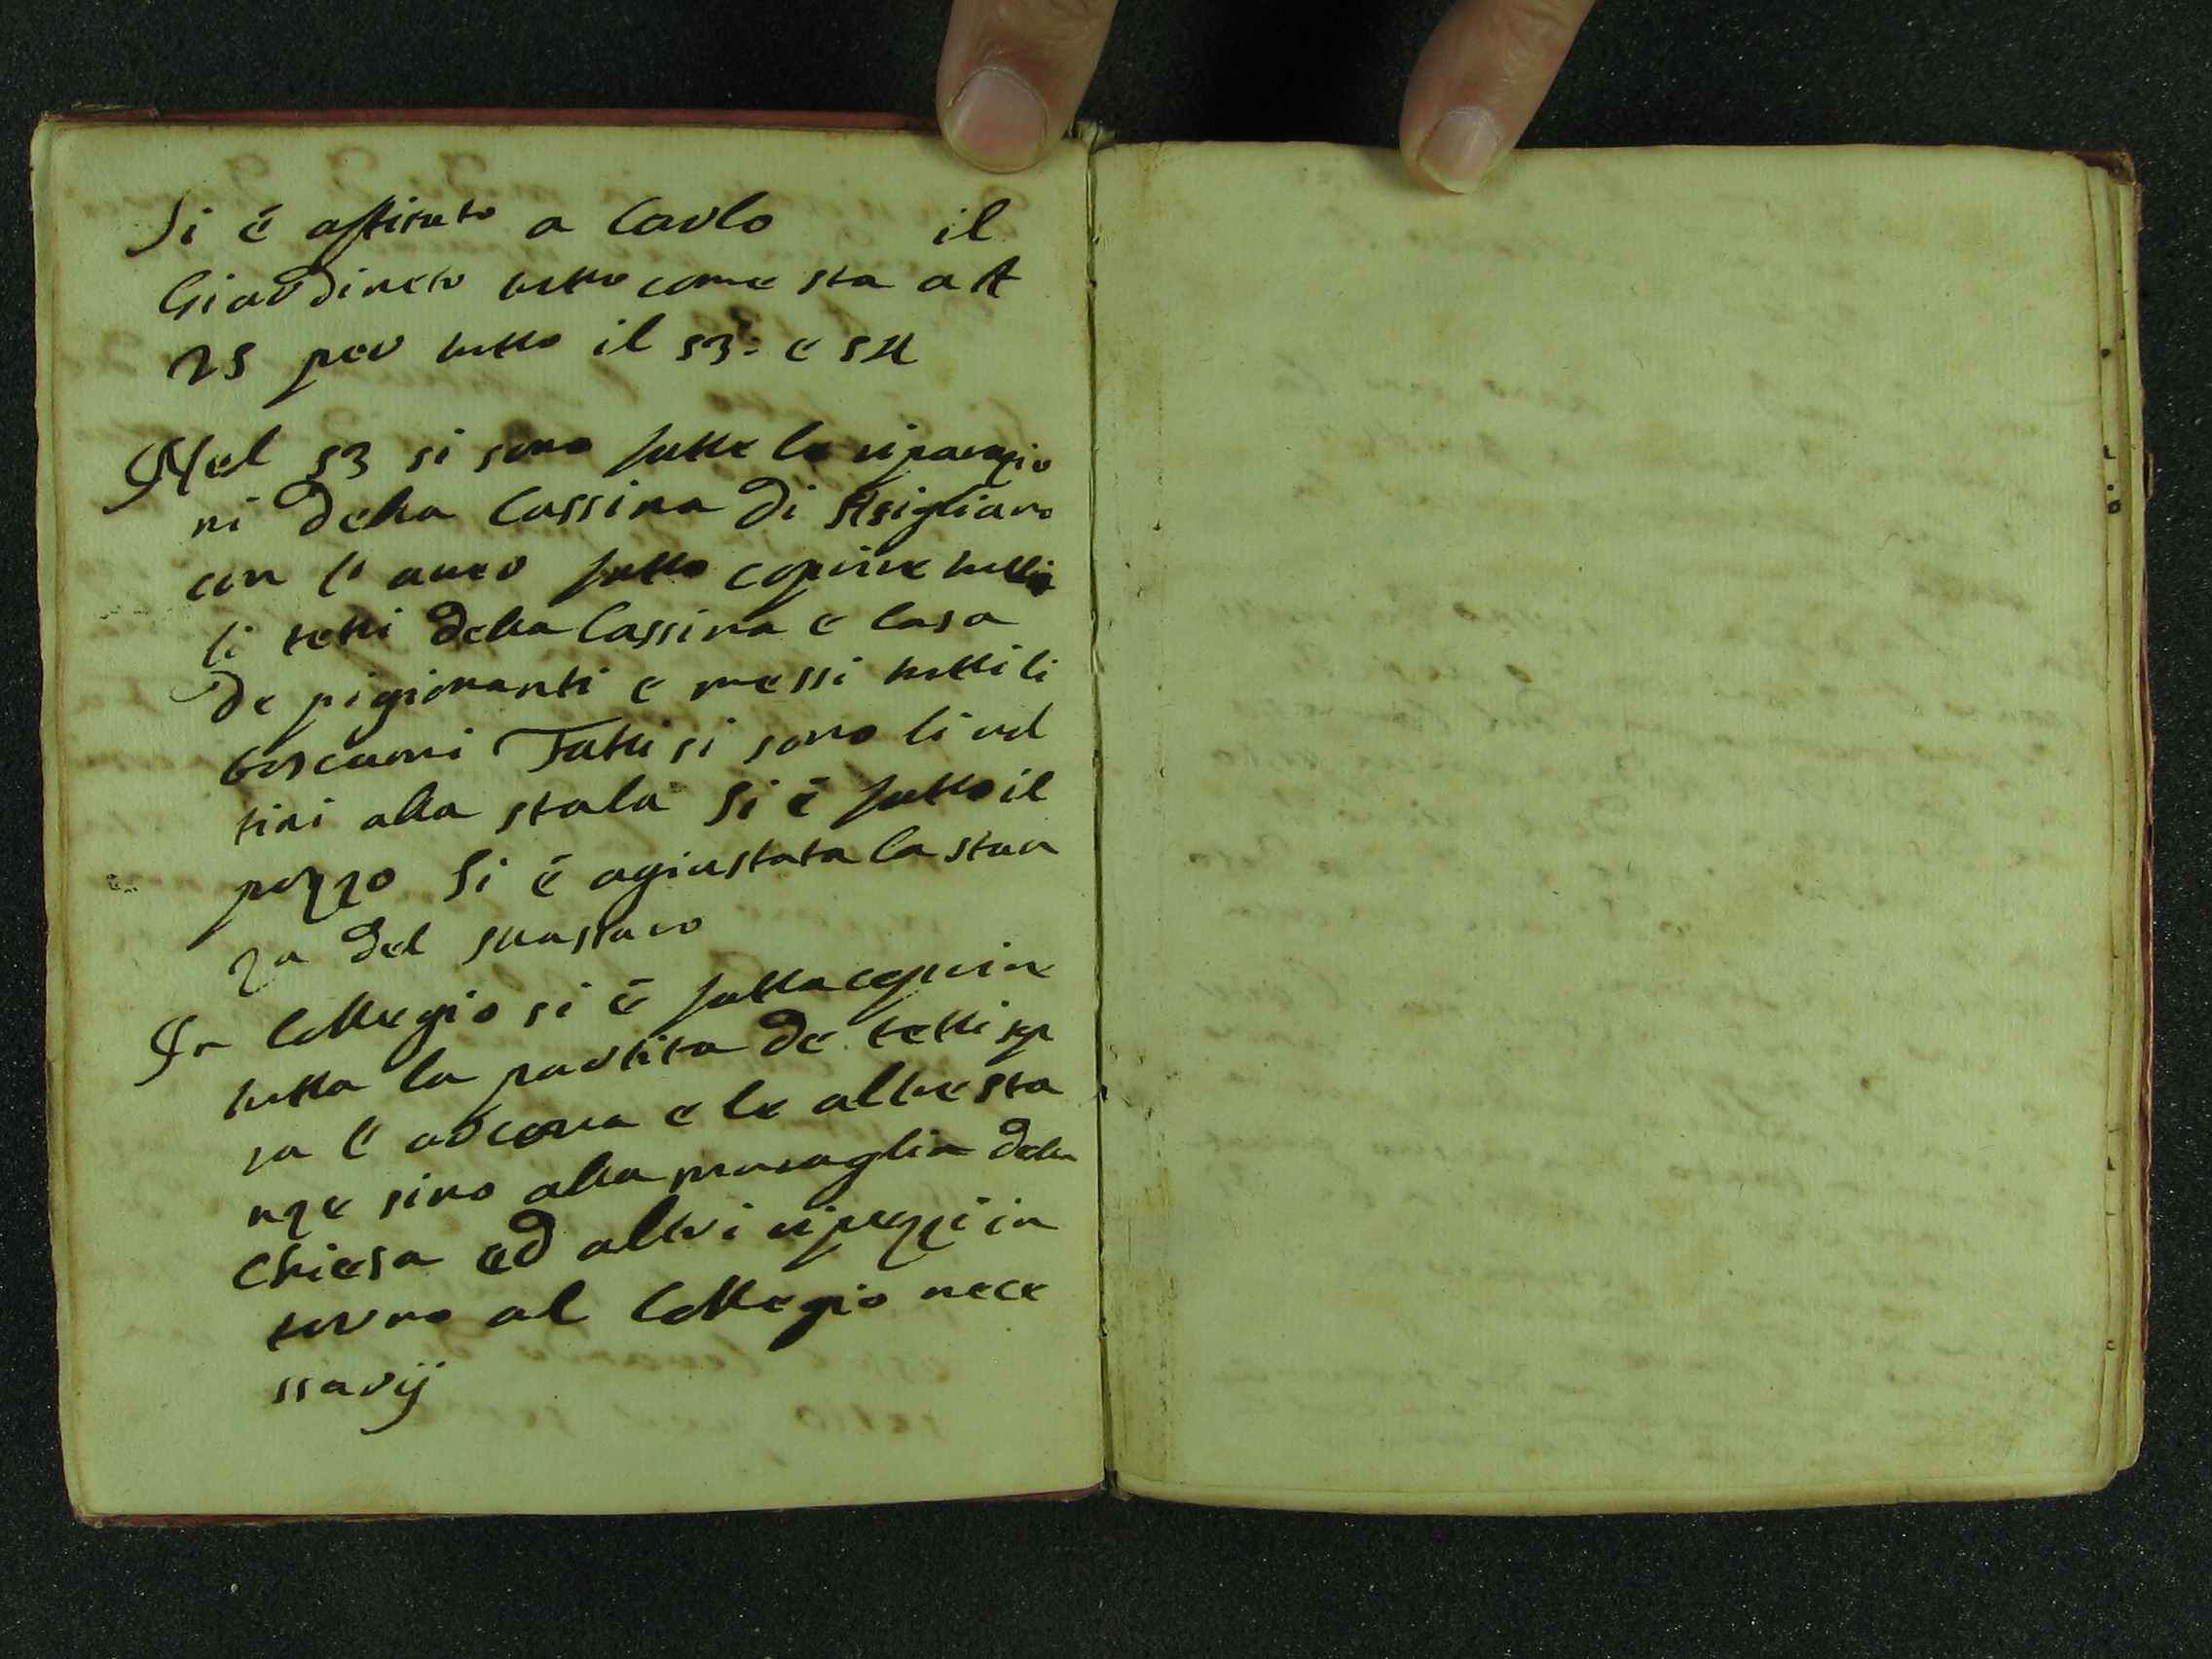 Si è affitato a Carlo il
Giardineto tutto come sta a ₶
25 per tutto il 53. e 54
Nel 53 si sono fatte le riparazio
ni della Cassina di Asigliano
con l'aver fatto coprire tutti
li tetti della Cassina e Casa
de pigionanti e messi tutti li
boscami Fatti si sono li vol
tini alla stala Si è fatto il
pozzo Si è agiustata la stan
za del
In Collegio si è fatta coprire
tutta la partita de tetti sop
ra l' ancona e le altre sta
nze sino alla muraglia della
Chiesa ed altri ripezzi in
torno al Collegio nece
ssarij